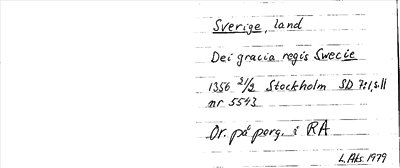 Sverige, land
Dei gracia regis Swecie
1356 2½ Stockholm SD 7:1, s. 11
nr 5543
Or. på perg. i RA
L. Aks. 1979